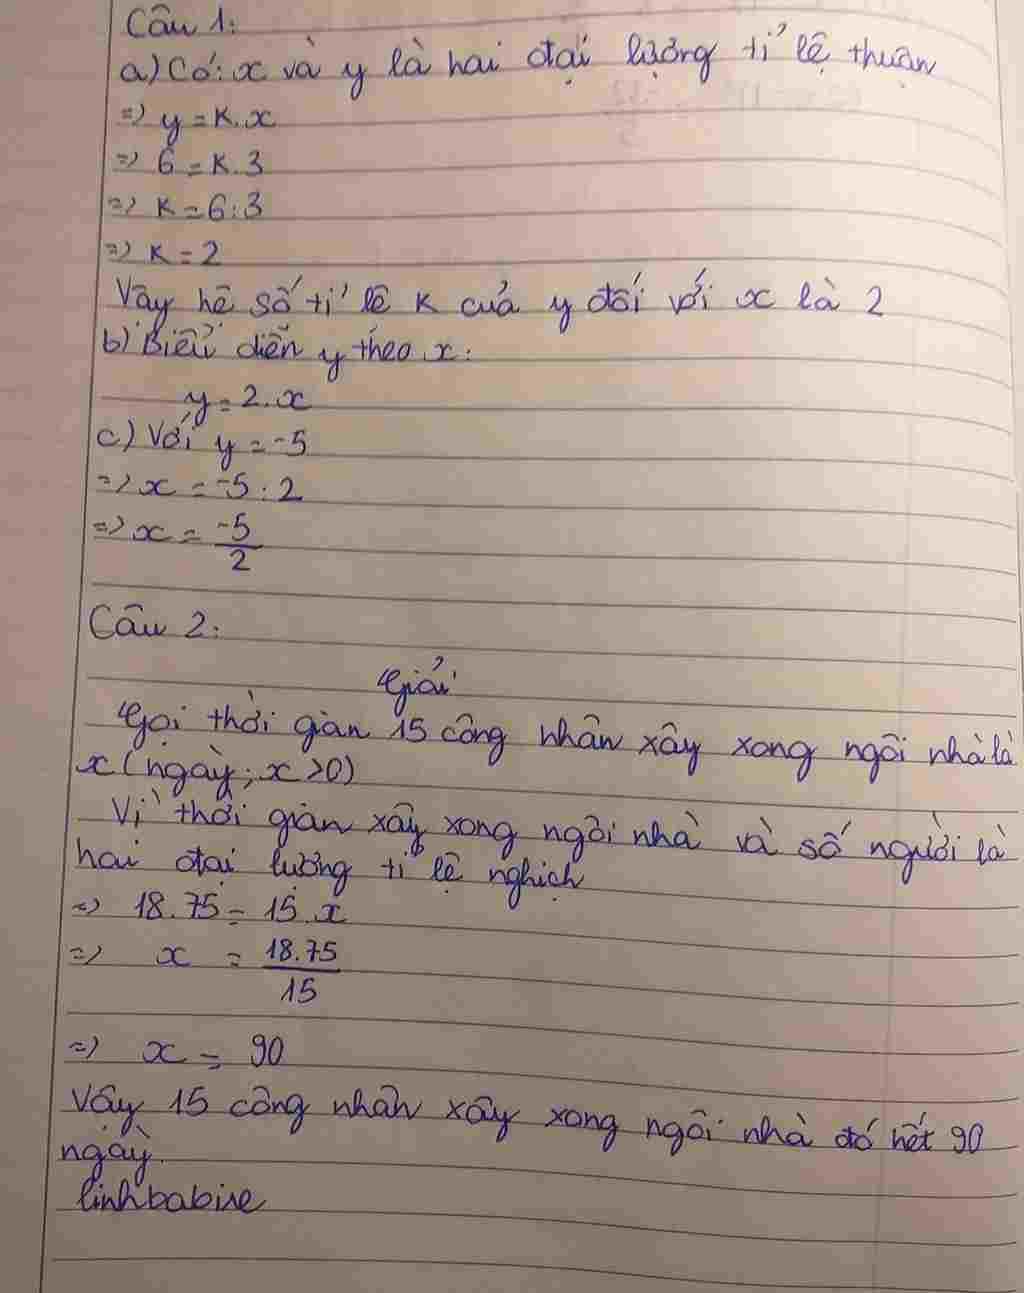 Câu 1:
a) Có: x và y là hai đại lượng tỉ lệ thuận
=> y = K.x
=> 6 = K.3
=> K = 6:3
=> K = 2
Vậy hệ số tỉ lệ K của y đối với x là 2
b) Biểu diễn y theo x:
y = 2.x
c) Với y = -5
=> x = -5:2
=> x = -5/2
Câu 2:
Giải
Gọi thời gian 15 công nhân xây xong ngôi nhà là
x (ngày; x>0)
Vì thời gian xây xong ngôi nhà và số người là
hai đại lượng tỉ lệ nghịch
=> 18.75 = 15.x
=> x = 18.75/15
=> x = 90
Vậy 15 công nhân xây xong ngôi nhà đó hết 90
ngày.
linhbabine